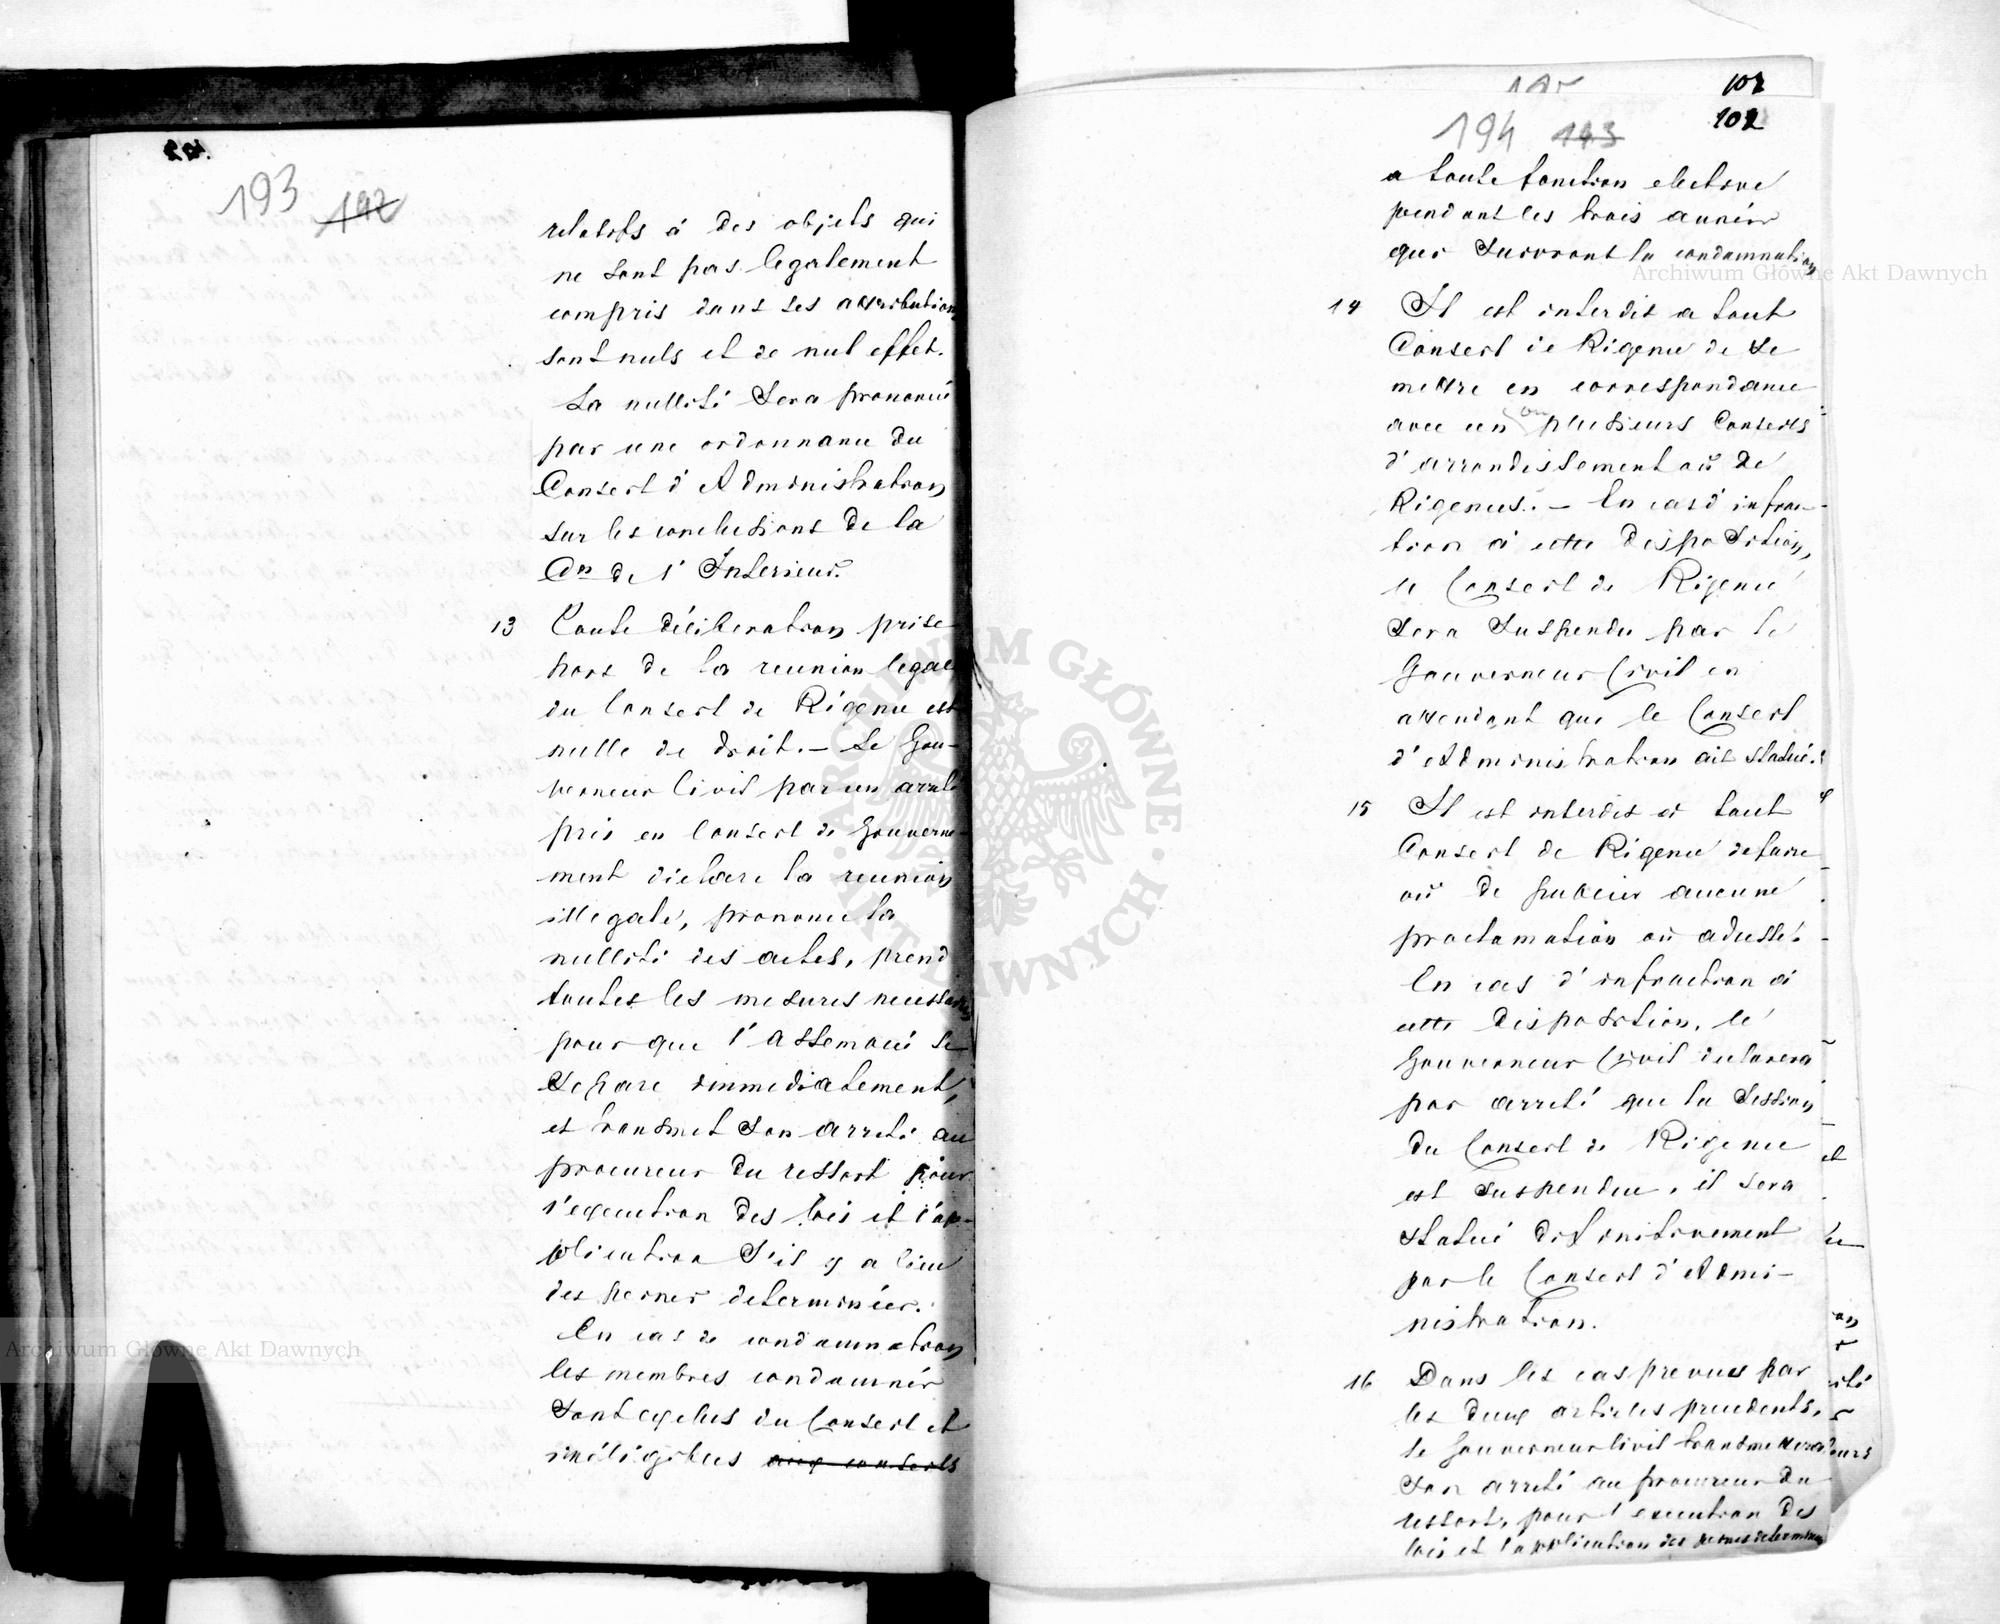 193 192
relatifs à des objets qui
ne sont pas legalement
compris dans ses attributions
sont nuls et de nul effet.
La nullité sera prononcé
par une ordonnance du
Conseil d'Administration
sur les conclusions de la
Con de l'Interieur.
13 Toute déliberation prise
hors de la reunion legale
du Conseil de Régence est
nulle de droit. – Le Gou-
verneur Civil par un arreté
pris en Conseil de Gouverne-
ment déclare la reunion
illegale, prononce la
nullité des actes, prend
toutes les mesures necessaires
pour que l'assemblée se
separe immediatement,
et transmet son arreté au
procureur du ressort pour
l'execution des lois et l'ap-
plication s'il y a lieu
des peines determinées.
En cas de condamnation
les membres condamnés
sont exclus du Conseil et
inéligibles aux conseils
194 193
102
102
a toute fonction elective
pendant les trois années
que suivront la condamnation
14 Il est interdit a tout
Conseil de Régence de se
mettre en correspondance
avec un ou plusieurs Conseils
d'arrondissement où de
Régences. – En cas d'infrac-
tion à cette disposition,
le Conseil de Régence
sera suspendu par le
Gouverneur Civil en
attendant que le Conseil
d'Administration ait statué.
15 Il est interdit à tout
Conseil de Régence de faire
où de publier aucune
proclamation où adresse.
En cas d'infraction à
cette disposition, le
Gouverneur Civil declarera
par arreté que la session
du Conseil de Régence
est suspendue, il sera
statué definitivement
par le Conseil d'Admi-
nistration.
16 Dans les cas prevues par
les deux articles precedents,
le Gouverneur Civil transmettera
son arreté au procureur du
ressort, pour l'execution des
lois et l'application des peines determinées
Archiwum Główne Akt Dawnych
Archiwum Główne Akt Dawnych
ARCHIWUM GŁÓWNE · AKT DAWNYCH ·